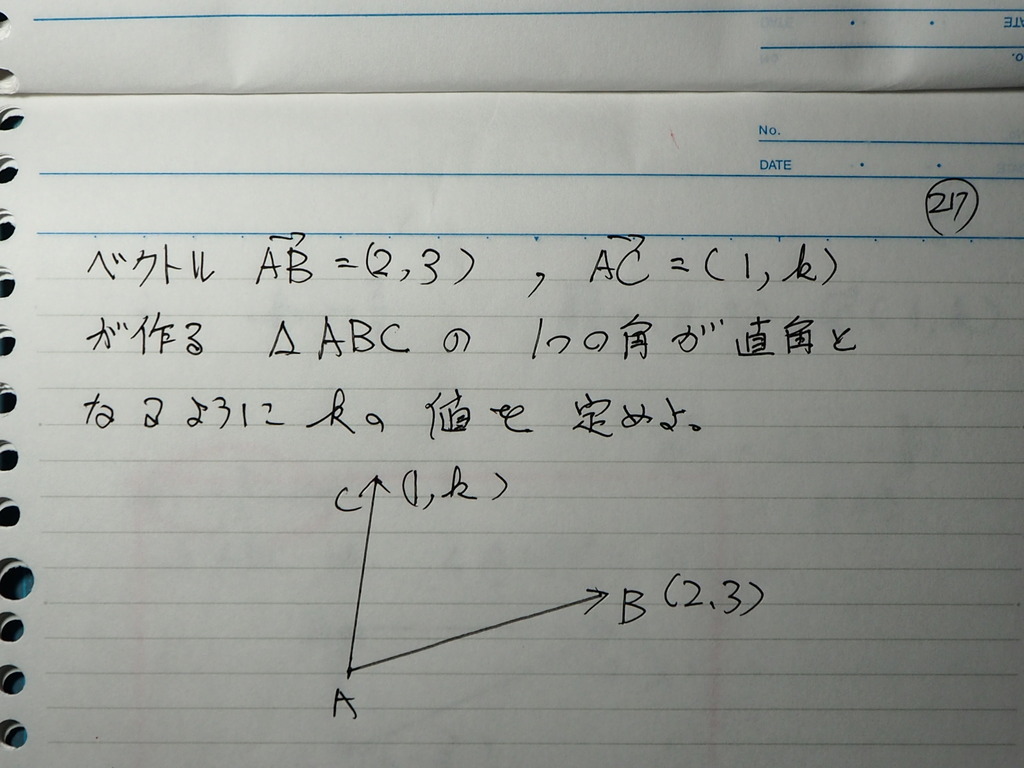 No.
DATE
217
ベクトル AB = (2, 3) , AC = (1, k)
が作る △ABC の 1つの角が直角と
なるように kの 値を 定めよ。
C (1, k)
B (2, 3)
A